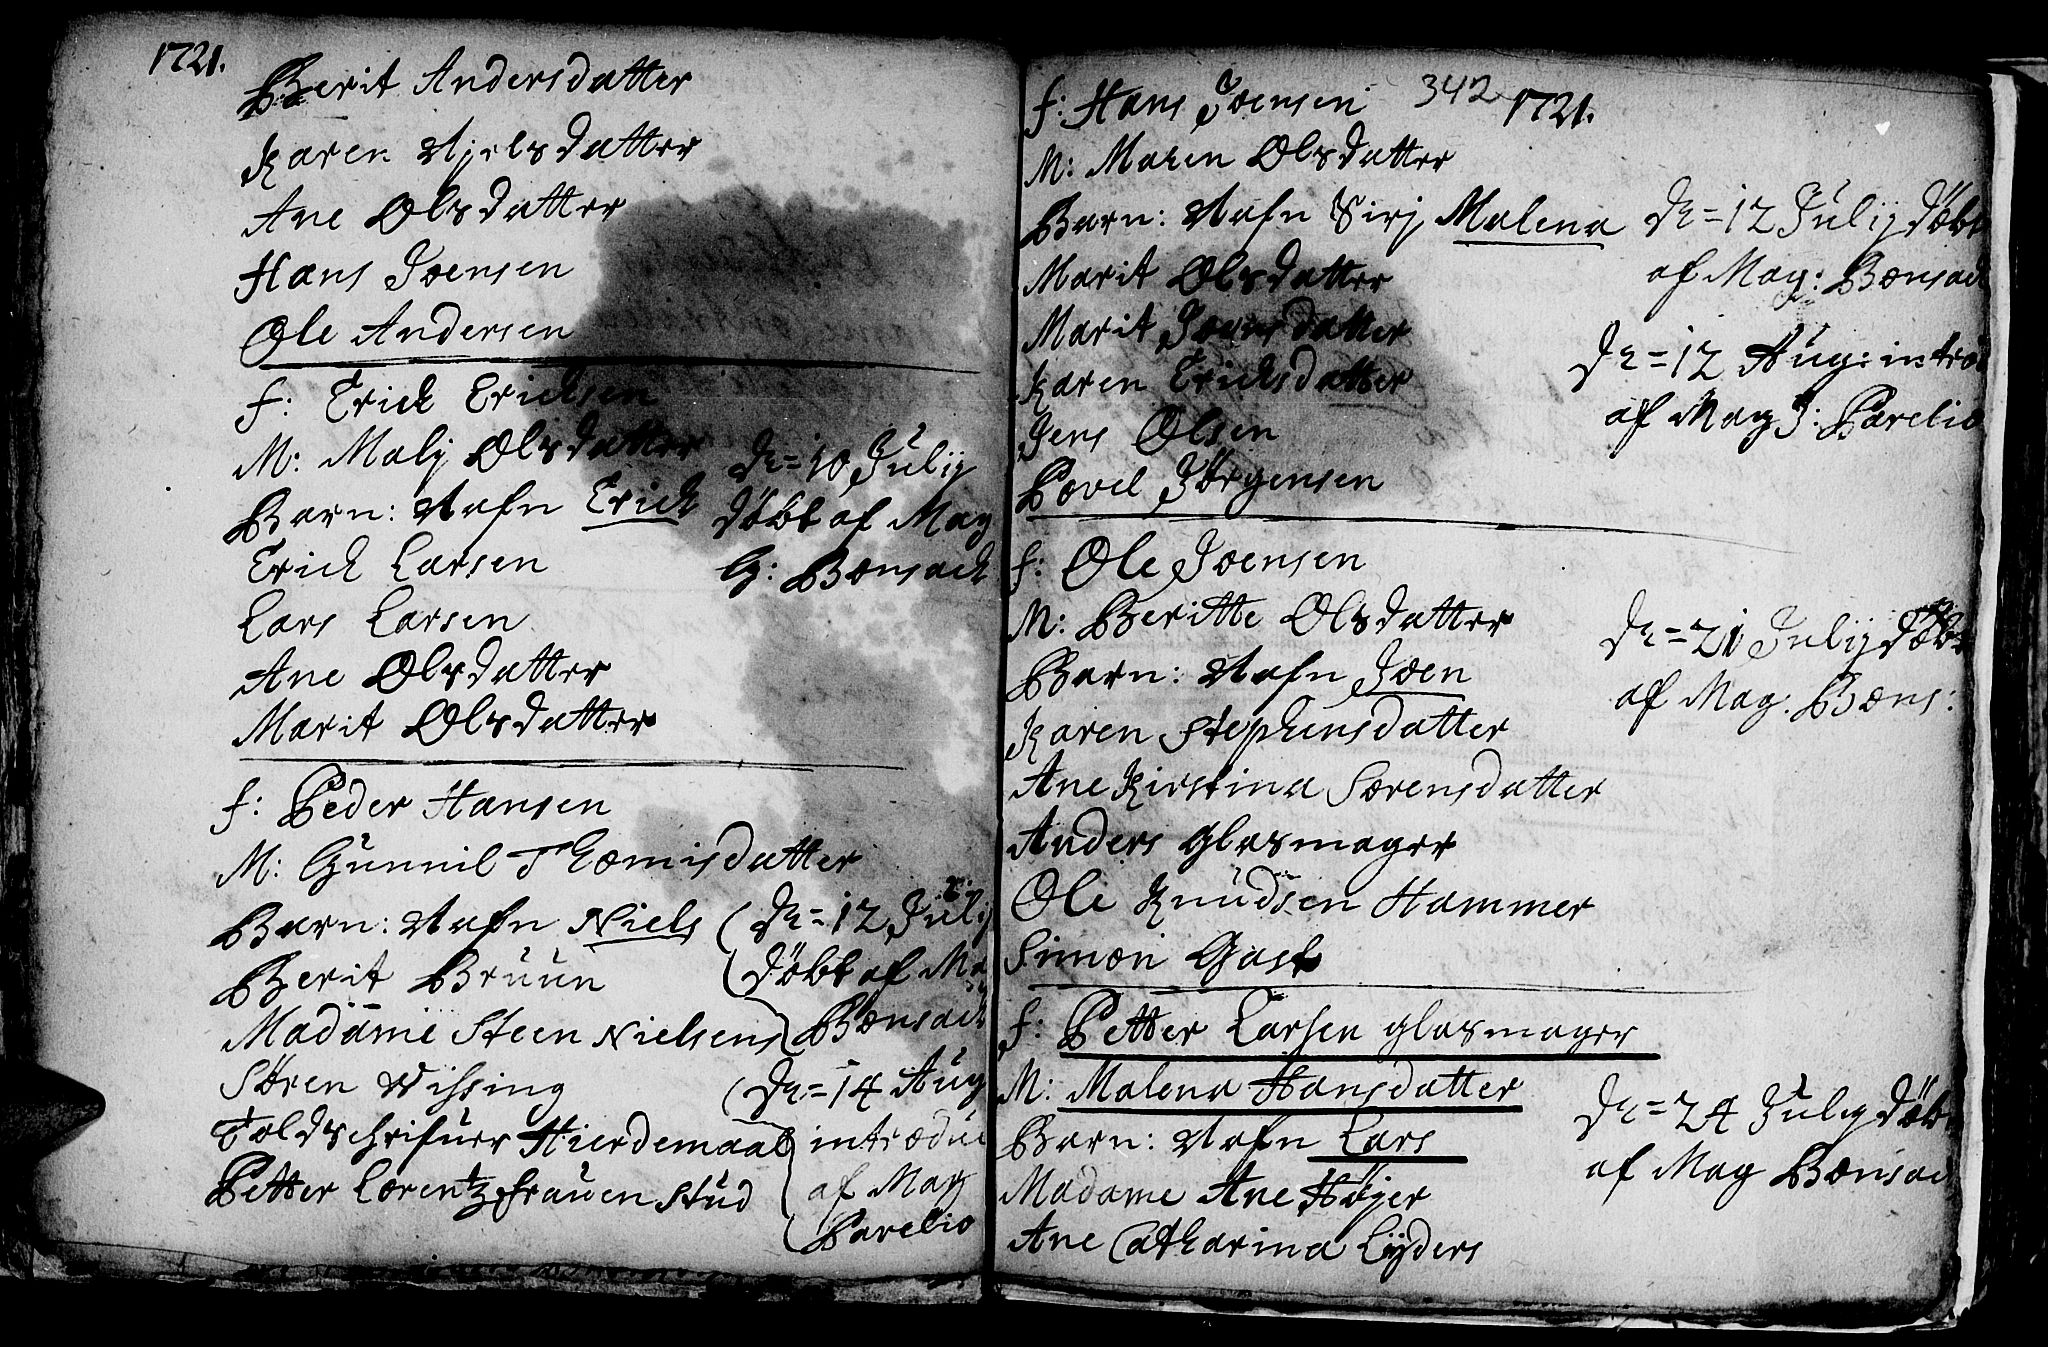 1721.
Berit Andersdatter
Karen Njelsdatter
Ane Olsdatter
Hans Joensen
Ole Andersen
f: Erick Ericksen
M: Malj Olsdatter
Barn: Nafn Erick
Erick Larsen
Lars Larsen
Ane Olsdatter
Marit Olsdatter
dn = 10 Julij
döbt af Mag
G: Bonsach
f: Peder Hansen
M: Gunnil Thomisdatter
Barn: Nafn Niels
Berit Bruun
Madame Steen Nielsens
Søren Wissing
Toldschrifuer Hierdemaal
Petter Lorentz frauen Stud
dn = 12 Julij
döbt af Ma
Bonsach
dn = 14 Aug
introdu
af Mag
Parelio
342 1721.
f: Hans Joensen
M: Maren Olsdatter
Barn: Nafn Sirj Malena
Marit Olsdatter
Marit Joensdatter
Karen Ericksdatter
Jens Olsen
Povel Jörgensen
dn = 12 Julij döbt
af Mag: Bonsach
dn = 12 Aug: introd
af Mag J: Parelio
f: Ole Joensen
M: Beritte Olsdatter
Barn: Nafn Joen
Karen Stephensdatter
Ane Kirstina Sorensdatter
Anders glasmager
Ole Knudsen Hammer
Simon Gast
dn = 21 Julij döbt
af Mag: Bons:
f: Petter Larsen glasmager
M: Malena Hansdatter
Barn: Nafn Lars
Madame Ane Højer
Ane Catharina Lÿders
dn = 24 Julij döbt
af Mag Bonsach